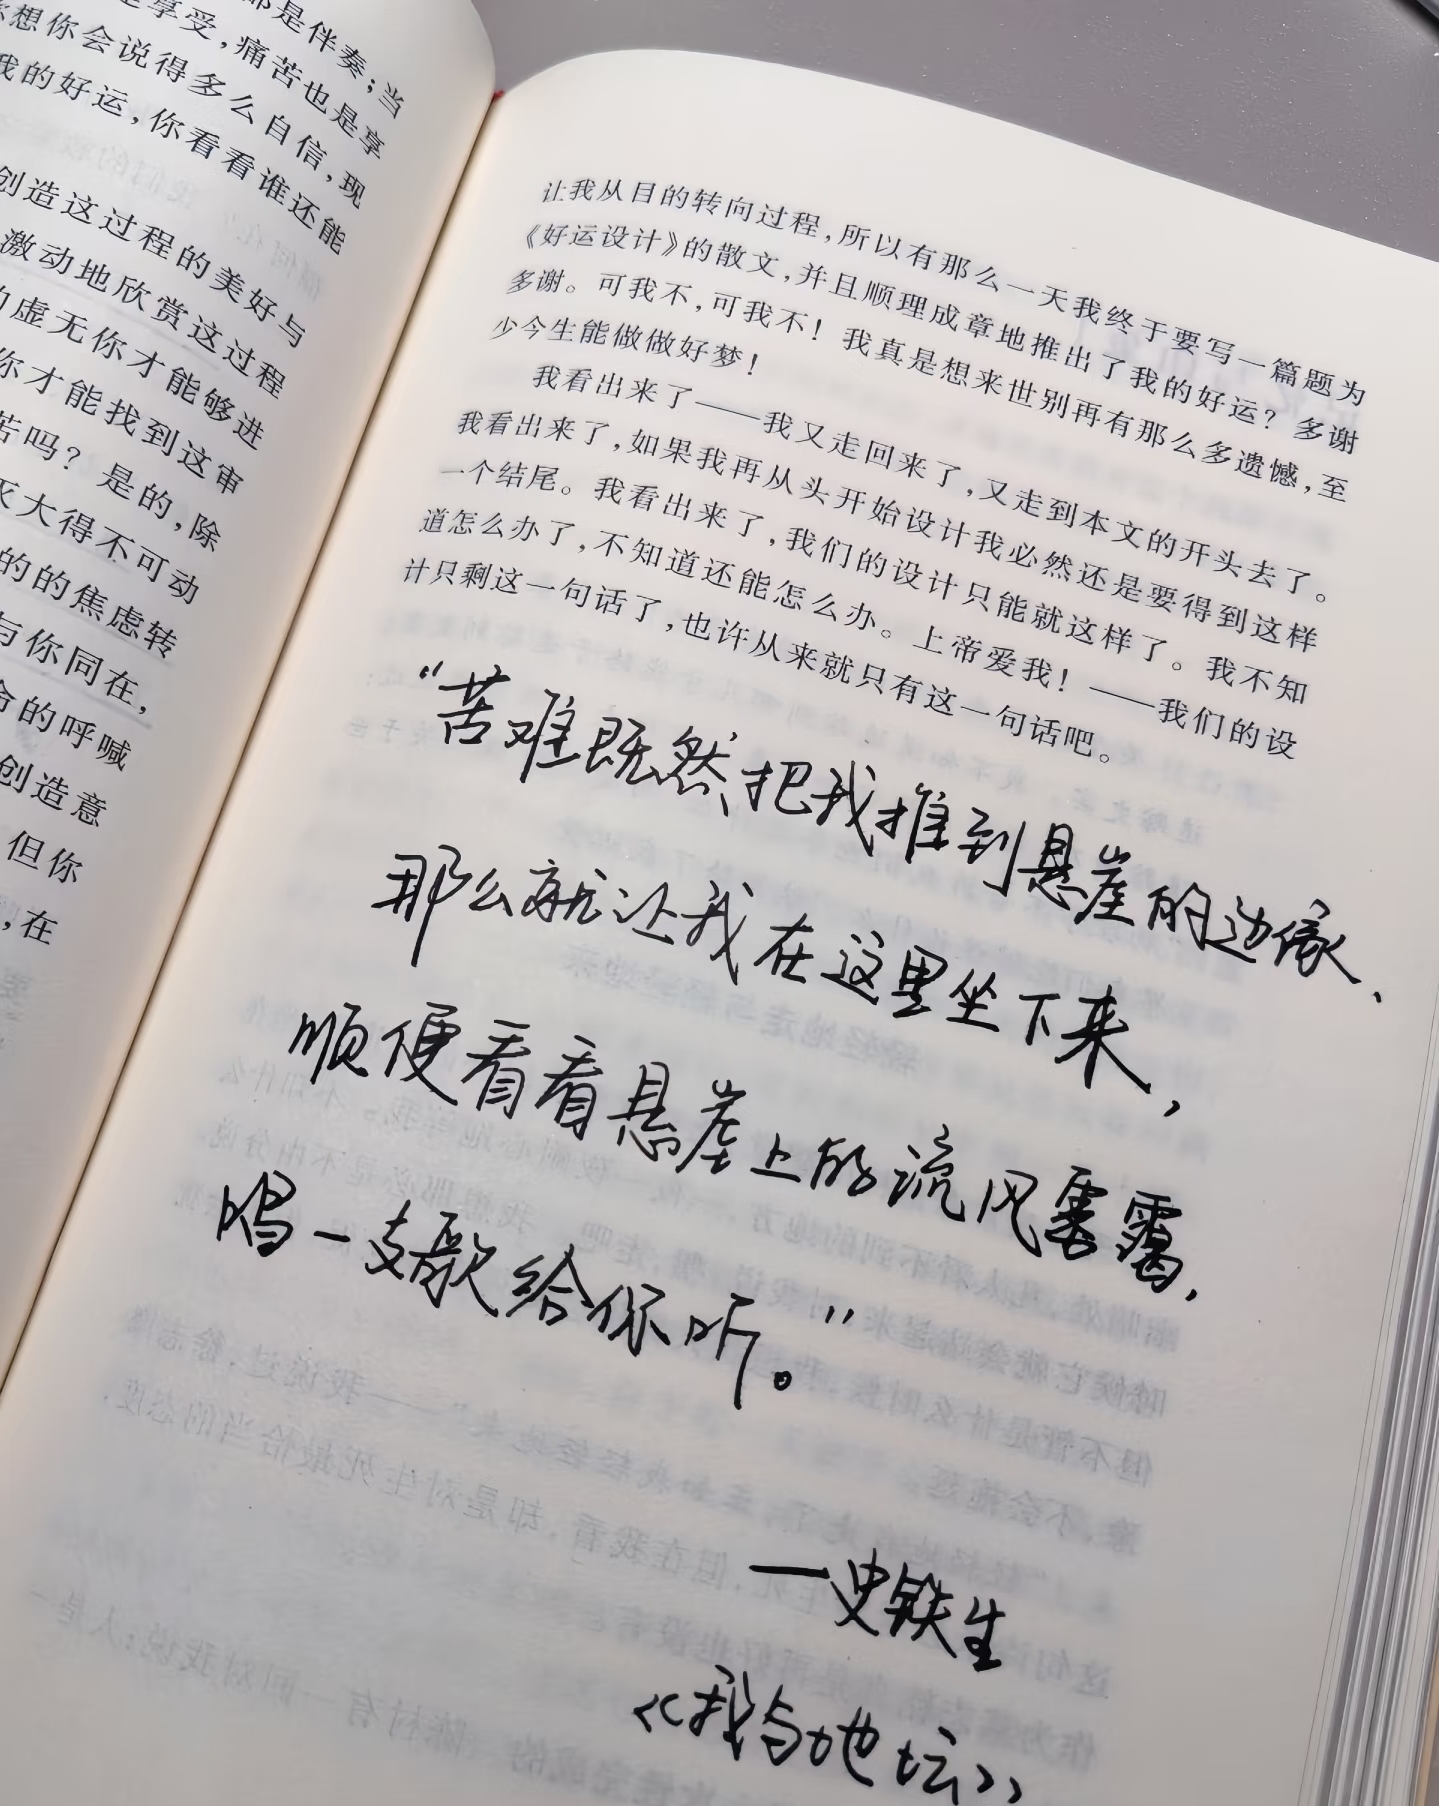 郎是伴奏；当
享受，痛苦也是享
想你会说得多么自信，现
我的好运，你看看谁还能
创造这过程的美好与
激动地欣赏这过程
虚无你才能够进
你才能找到这审
苦吗？是的，除
灭大得不可动
的的焦虑转
与你同在，
命的呼喊
创造意
但你
，在
让我从目的转向过程，所以有那么一天我终于要写一篇题为
《好运设计》的散文，并且顺理成章地推出了我的好运？多谢
多谢。可我不，可我不！我真是想来世别再有那么多遗憾，至
少今生能做做好梦！
我看出来了——我又走回来了，又走到本文的开头去了。
我看出来了，如果我再从头开始设计我必然还是要得到这样
一个结尾。我看出来了，我们的设计只能就这样了。我不知
道怎么办了，不知道还能怎么办。上帝爱我！——我们的设
计只剩这一句话了，也许从来就只有这一句话吧。
“苦难既然把我推到悬崖的边缘、
那么就让我在这里坐下来，
顺便看看悬崖上的流风雾霭，
唱一支歌给你听。”
—史铁生
《我与地坛》